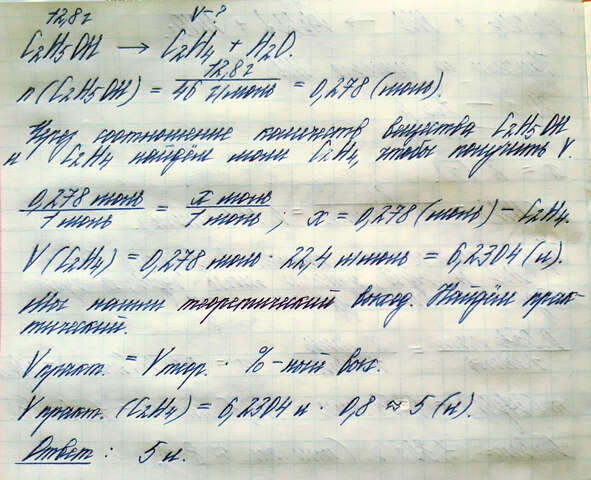 12,8 г V-?
C2H5OH → C2H4 + H2O.
n(C2H5OH) = 12,8 г / 46 г/моль = 0,278 (моль).
Через соотношение количеств вещества C2H5OH
и C2H4 найдём моли C2H4, чтобы получить V.
0,278 моль / 1 моль = x моль / 1 моль ; x = 0,278 (моль) - C2H4.
V(C2H4) = 0,278 моль · 22,4 л/моль = 6,2304 (л).
Мы нашли теоретический выход. Найдём прак-
тический.
V практ. = V теор. · %-ный вых.
V практ. (C2H4) = 6,2304 л · 0,8 ≈ 5 (л).
Ответ : 5 л.